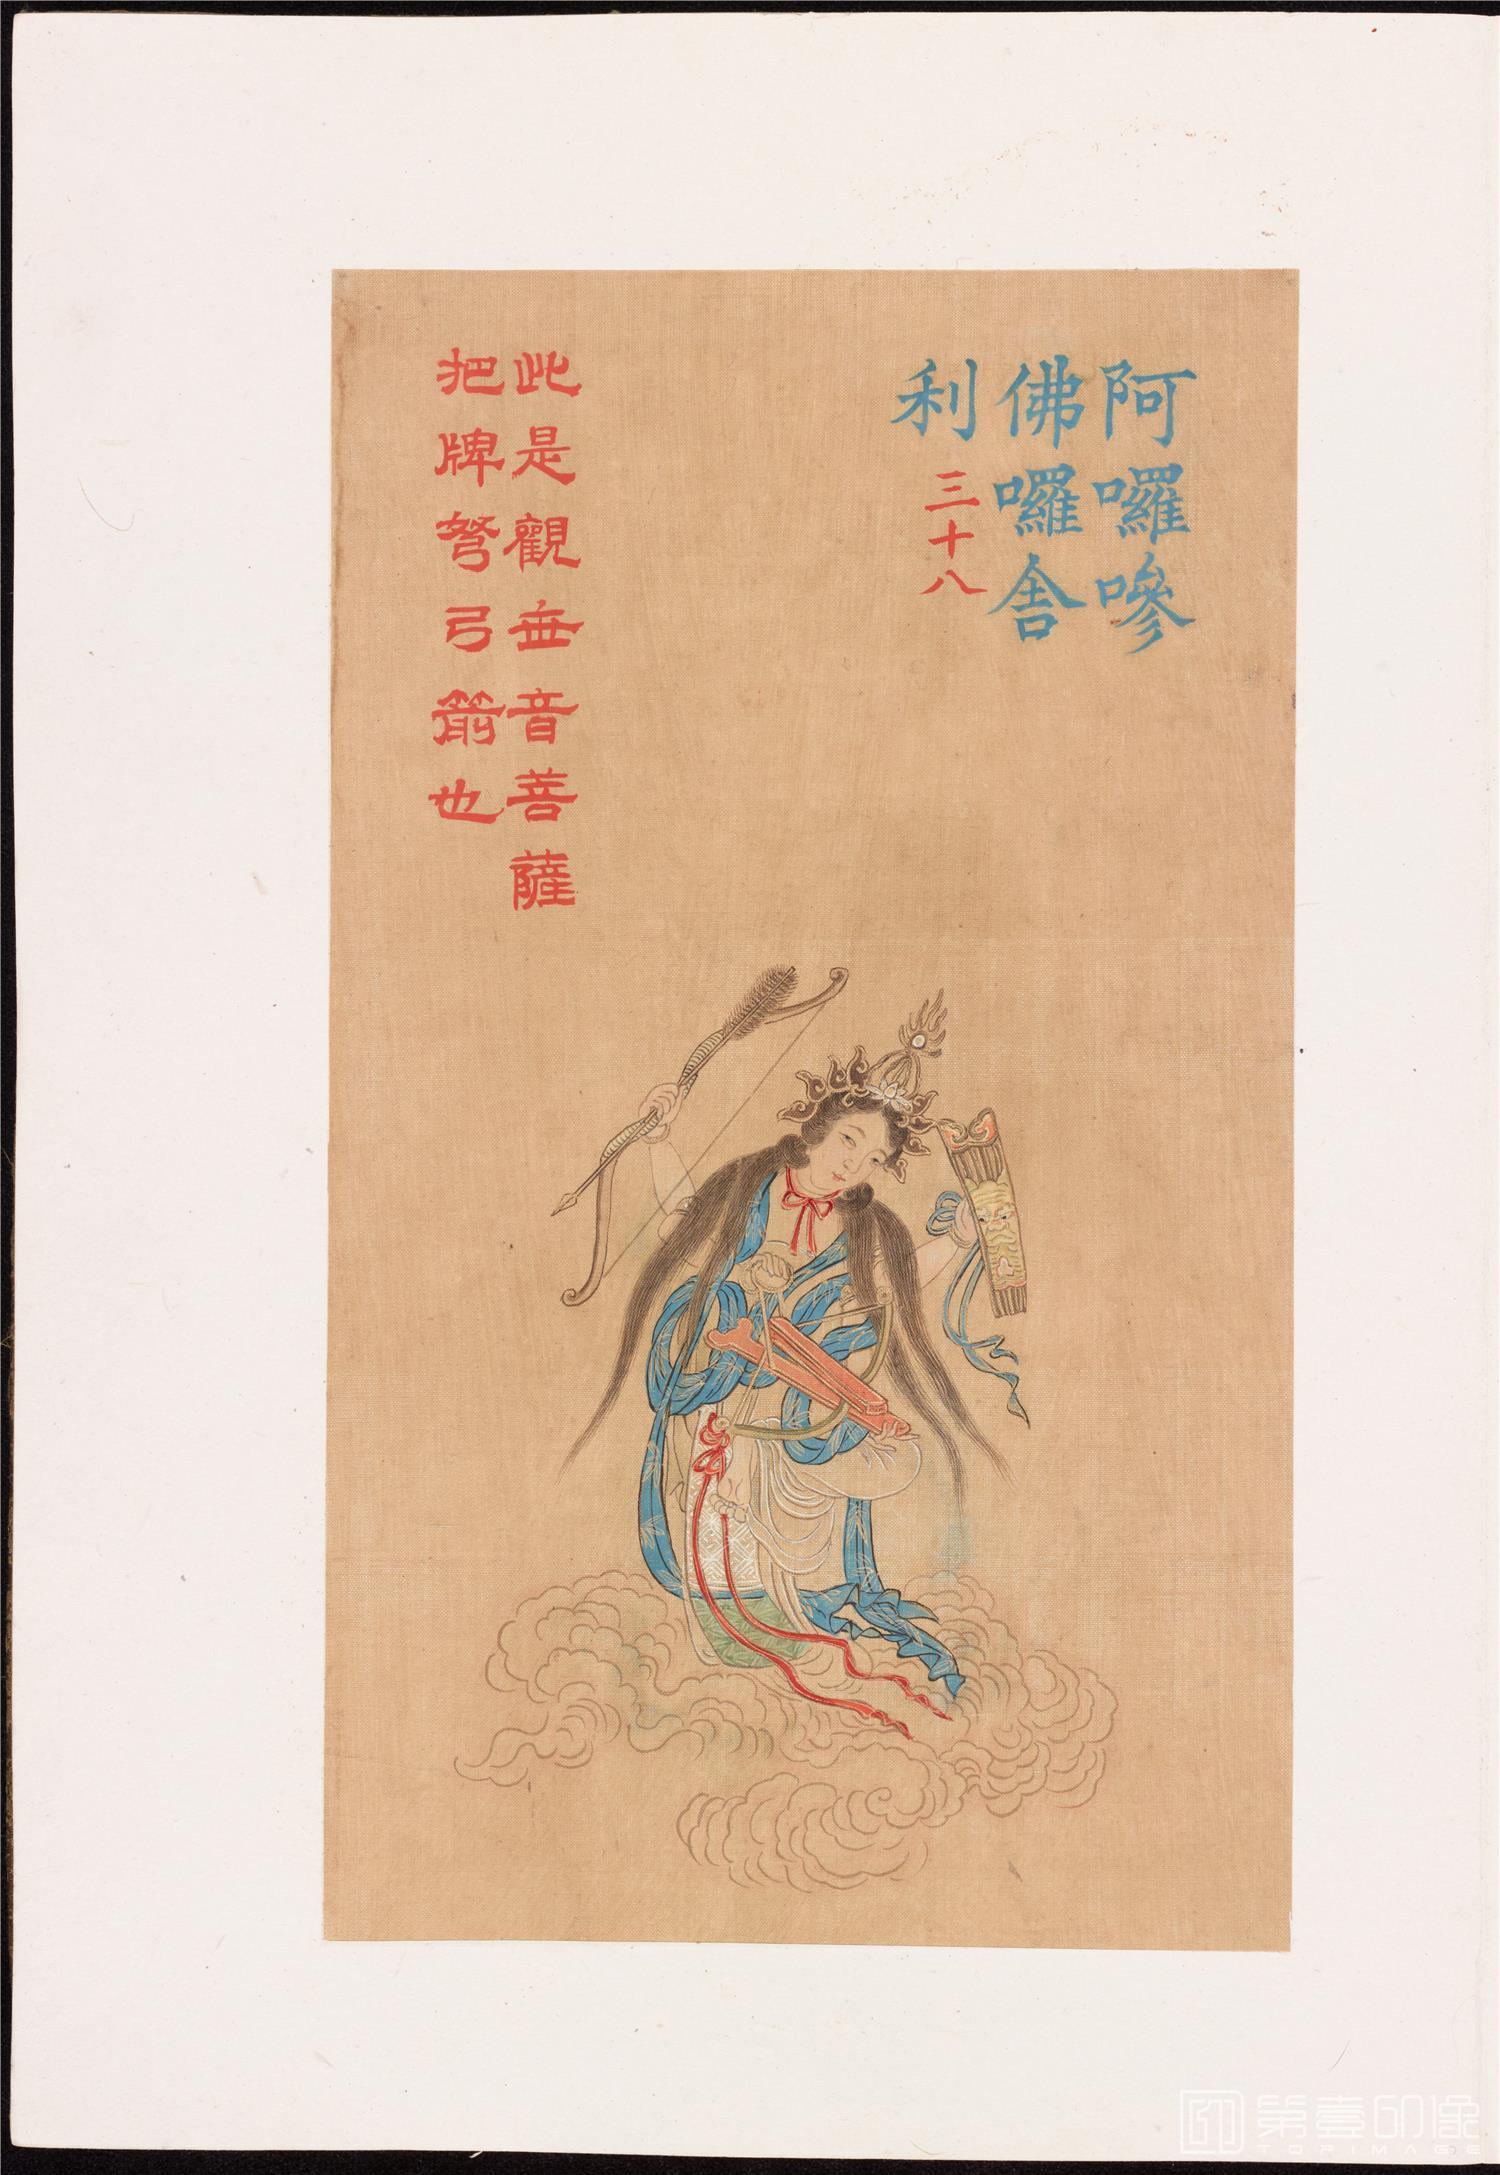 阿囉嘇
佛囉舎
利
三十八
此是觀世音菩薩
把牌弩弓箭也
第壹印像
TOPIMAGE